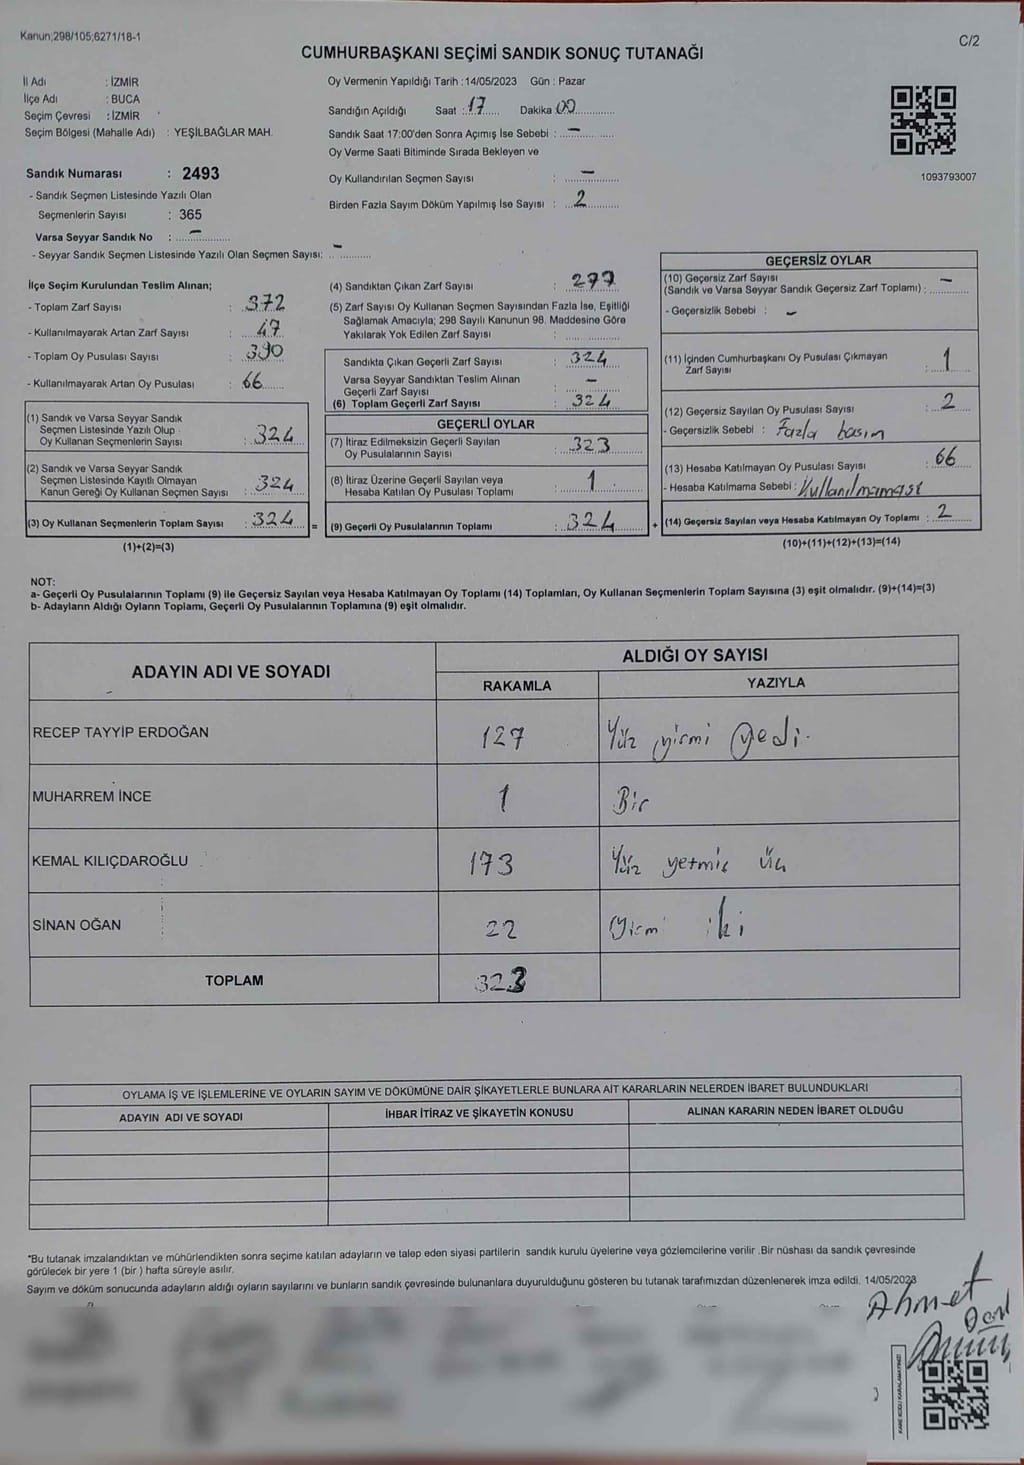 Kanun;298/105;6271/18-1
C/2
CUMHURBAŞKANI SEÇİMİ SANDIK SONUÇ TUTANAĞI
İl Adı : İZMİR
İlçe Adı : BUCA
Seçim Çevresi : İZMİR
Seçim Bölgesi (Mahalle Adı) : YEŞİLBAĞLAR MAH.
Sandık Numarası : 2493
- Sandık Seçmen Listesinde Yazılı Olan
Seçmenlerin Sayısı : 365
Varsa Seyyar Sandık No : –
- Seyyar Sandık Seçmen Listesinde Yazılı Olan Seçmen Sayısı: –
Oy Vermenin Yapıldığı Tarih :14/05/2023 Gün : Pazar
Sandığın Açıldığı Saat : 17 Dakika 00
Sandık Saat 17:00'den Sonra Açımış İse Sebebi : –
Oy Verme Saati Bitiminde Sırada Bekleyen ve
Oy Kullandırılan Seçmen Sayısı : –
Birden Fazla Sayım Döküm Yapılmış İse Sayısı : 2
1093793007
İlçe Seçim Kurulundan Teslim Alınan;
- Toplam Zarf Sayısı : 372
- Kullanılmayarak Artan Zarf Sayısı : 47
- Toplam Oy Pusulası Sayısı : 390
- Kullanılmayarak Artan Oy Pusulası : 66
(1) Sandık ve Varsa Seyyar Sandık
Seçmen Listesinde Yazılı Olup
Oy Kullanan Seçmenlerin Sayısı : 324
(2) Sandık ve Varsa Seyyar Sandık
Seçmen Listesinde Kayıtlı Olmayan
Kanun Gereği Oy Kullanan Seçmen Sayısı : 324
(3) Oy Kullanan Seçmenlerin Toplam Sayısı : 324 =
(1)+(2)=(3)
(4) Sandıktan Çıkan Zarf Sayısı : 277
(5) Zarf Sayısı Oy Kullanan Seçmen Sayısından Fazla İse, Eşitliği
Sağlamak Amacıyla; 298 Sayılı Kanunun 98. Maddesine Göre
Yakılarak Yok Edilen Zarf Sayısı :
Sandıkta Çıkan Geçerli Zarf Sayısı : 324
Varsa Seyyar Sandıktan Teslim Alınan
Geçerli Zarf Sayısı : –
(6) Toplam Geçerli Zarf Sayısı : 324
GEÇERLİ OYLAR
(7) İtiraz Edilmeksizin Geçerli Sayılan
Oy Pusulalarının Sayısı : 323
(8) İtiraz Üzerine Geçerli Sayılan veya
Hesaba Katılan Oy Pusulası Toplamı : 1
(9) Geçerli Oy Pusulalarının Toplamı : 324 +
GEÇERSİZ OYLAR
(10) Geçersiz Zarf Sayısı
(Sandık ve Varsa Seyyar Sandık Geçersiz Zarf Toplamı) : –
- Geçersizlik Sebebi : –
(11) İçinden Cumhurbaşkanı Oy Pusulası Çıkmayan
Zarf Sayısı : 1
(12) Geçersiz Sayılan Oy Pusulası Sayısı : 2
- Geçersizlik Sebebi : Fazla basım
(13) Hesaba Katılmayan Oy Pusulası Sayısı : 66
- Hesaba Katılmama Sebebi : Kullanılmaması
(14) Geçersiz Sayılan veya Hesaba Katılmayan Oy Toplamı : 2
(10)+(11)+(12)+(13)=(14)
NOT:
a- Geçerli Oy Pusulalarının Toplamı (9) ile Geçersiz Sayılan veya Hesaba Katılmayan Oy Toplamı (14) Toplamları, Oy Kullanan Seçmenlerin Toplam Sayısına (3) eşit olmalıdır. (9)+(14)=(3)
b- Adayların Aldığı Oyların Toplamı, Geçerli Oy Pusulalarının Toplamına (9) eşit olmalıdır.
ADAYIN ADI VE SOYADI
ALDIĞI OY SAYISI
RAKAMLA YAZIYLA
RECEP TAYYİP ERDOĞAN 127 Yüz yirmi yedi.
MUHARREM İNCE 1 Bir
KEMAL KILIÇDAROĞLU 173 Yüz yetmiş üç
SİNAN OĞAN 22 Yirmi iki
TOPLAM 323
OYLAMA İŞ VE İŞLEMLERİNE VE OYLARIN SAYIM VE DÖKÜMÜNE DAİR ŞİKAYETLERLE BUNLARA AİT KARARLARIN NELERDEN İBARET BULUNDUKLARI
ADAYIN ADI VE SOYADI İHBAR İTİRAZ VE ŞİKAYETİN KONUSU ALINAN KARARIN NEDEN İBARET OLDUĞU
*Bu tutanak imzalandıktan ve mühürlendikten sonra seçime katılan adayların ve talep eden siyasi partilerin sandık kurulu üyelerine veya gözlemcilerine verilir .Bir nüshası da sandık çevresinde
görülecek bir yere 1 (bir ) hafta süreyle asılır.
Sayım ve döküm sonucunda adayların aldığı oyların sayılarını ve bunların sandık çevresinde bulunanlara duyurulduğunu gösteren bu tutanak tarafımızdan düzenlenerek imza edildi. 14/05/2023
Ahmet
KARE KODU KARALAMAYINIZ!